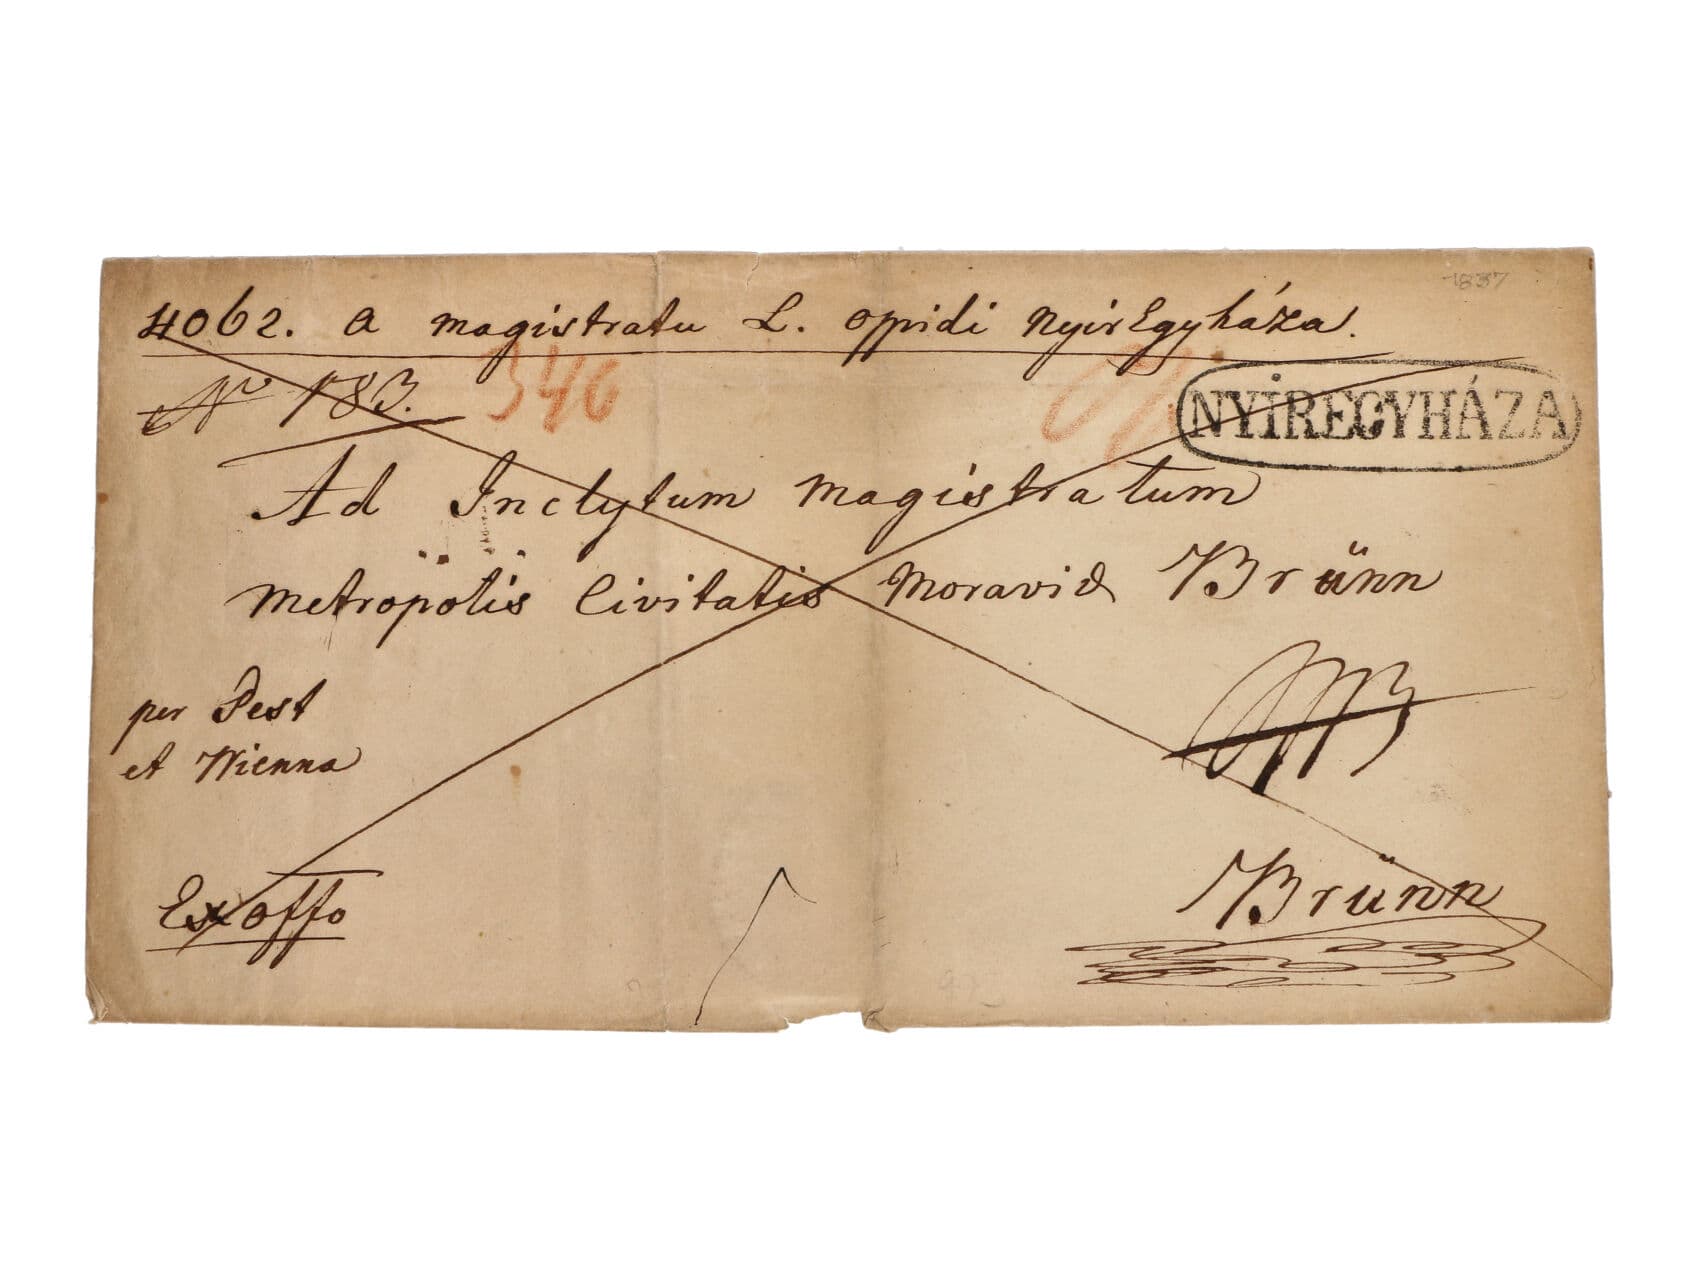 1837
4062. a magistratu L. oppidi NyirEgyháza.
No 183.
346
NYÍREGYHÁZA
Ad Inclytum Magistratum
Metropolis Civitatis Moraviæ Brünn
per Pest
et Wienna
Ex offo
Brünn